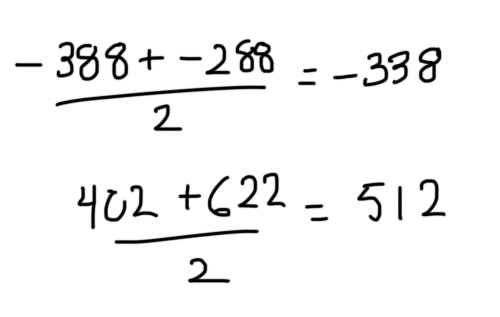 -388 + -288 = -338
2
402 + 622 = 512
2